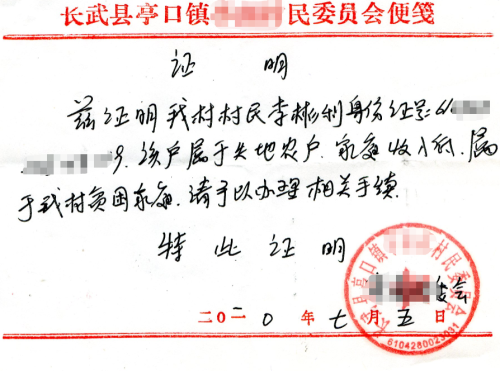 长武县亭口镇 民委员会便笺
证 明
兹证明我村村民李彬利身份证号:61
9. 该户属于失地农户. 家庭收入低. 属
于我村贫困家庭. 请予以办理相关手续.
特 此 证 明
委会
二〇二〇年七月五日
长武县亭口镇 村民委员会
6104280023031